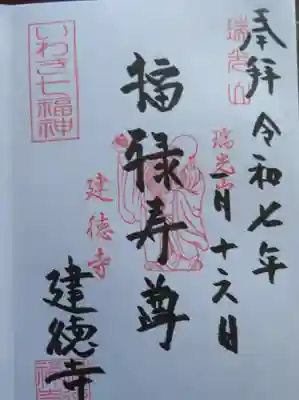 奉拝
令和七年
一月十六日
瑞光山
瑞光山
福禄寿尊
建徳寺
建徳寺
いわき七福神